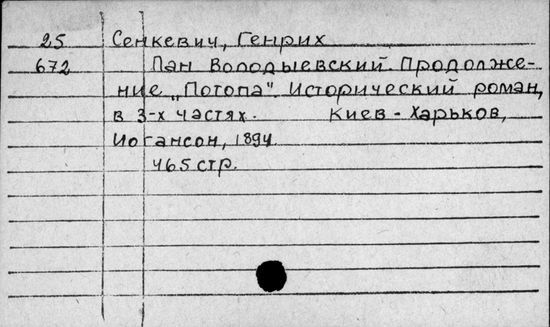 25 Сенкевич, Генрих
672 Пан Володыевский. Продолже-
ние „Потопа". Исторический роман,
в 3-х частях. Киев - Харьков,
Иогансон, 1894.
465 стр.